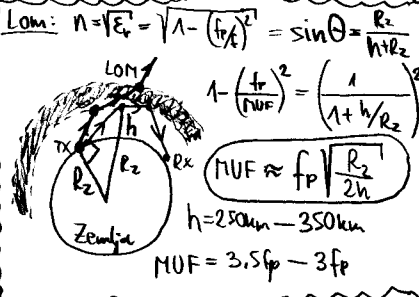 Lom: n=√εr = √(1-(fp/f)²) = sinΘ = Rz/(h+Rz)
LOM
1-(fp/MUF)² = (1/(1+h/Rz))²
TX
h
Rz
Rz
Rx
Zemlja
MUF ≈ fp √(Rz/2h)
h=250km — 350km
MUF = 3.5fp — 3fp